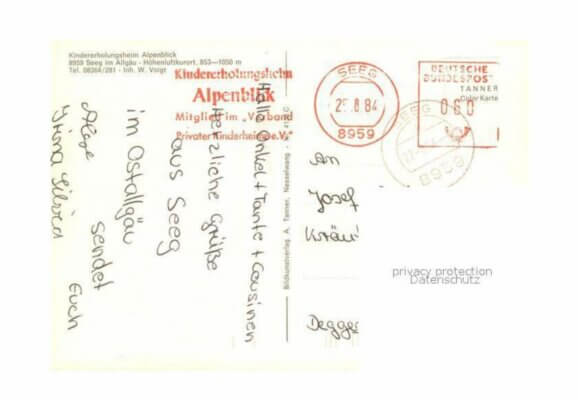 Kindererholungsheim Alpenblick
8959 Seeg im Allgäu - Höhenluftkurort, 853—1050 m
Tel. 08364/281 - Inh. W. Voigt
Kindererholungsheim
Alpenblick
Mitglied im „Verband
Privater Kinderheime e.V."
SEEG
29.8.84
8959
DEUTSCHE
BUNDESPOST
060
TANNER
Color Karte
SEEG
8959
Hallo Onkel + Tante + Cousinen
Herzliche Grüße
aus Seeg
im Ostallgäu
sendet
Euch
Irina
Bildkunstverlag A. Tanner, Nesselwang
An
Josef
Degge
privacy protection
Datenschutz